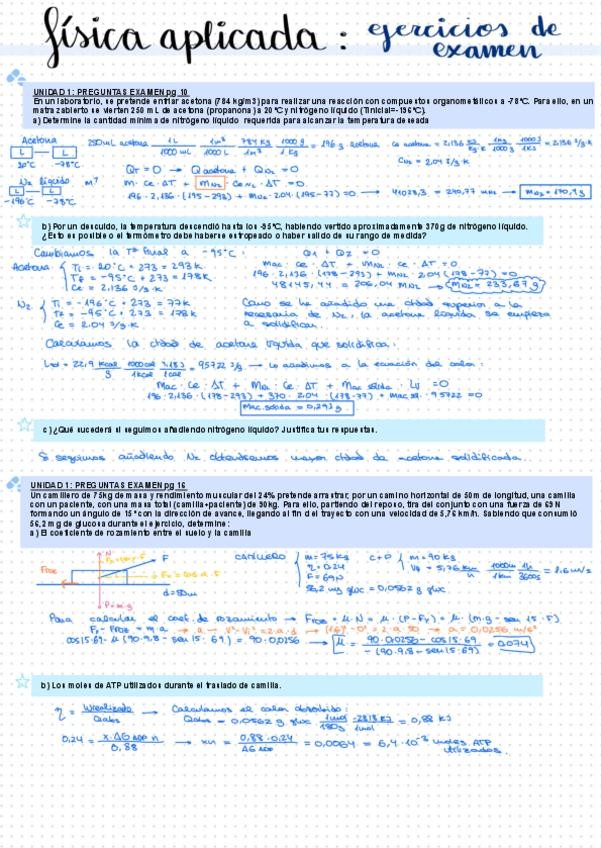 física aplicada: ejercicios de examen
UNIDAD 1: PREGUNTAS EXAMEN pg 10
En un laboratorio, se pretende enfriar acetona (784 kg/m3) para realizar una reacción con compuestos organometálicos a -78ºC. Para ello, en un
matraz abierto se vierten 250 mL de acetona (propanona) a 20ºC y nitrógeno líquido (Tinicial=-196ºC).
a) Determine la cantidad mínima de nitrógeno líquido requerida para alcanzar la temperatura deseada
Acetona
L L
20°C -78°C
250mL acetona 1L/1000 mL 1m³/1000 L 784 kg/1m³ 1000 g/1 kg = 196 g acetona
Ce acetona = 2,136 kJ/kg·K 1kg/1000g 1000J/1KJ = 2,136 J/g·K
CN2 = 2,04 J/g·K
N2 líquido m?
L L
-196°C -78°C
QT = 0 → Qacetona + QN2 = 0
m · Ce · ΔT + mN2 · Ce N2 · ΔT = 0
196 · 2,136 · (195-293) + mN2 · 2,04 (195-77) = 0 → 41028,3 = 240,77 mN2 → mN2 = 170,4 g
b) Por un descuido, la temperatura descendió hasta los -95ºC, habiendo vertido aproximadamente 370g de nitrógeno líquido.
¿Esto es posible o el termómetro debe haberse estropeado o haber salido de su rango de medida?
Cambiamos la Tª final a -95°C:
Acetona
Ti = 20°C + 273 = 293K
Tf = -95°C + 273 = 178K
Ce = 2,136 J/g·K
Q1 + Q2 = 0
mac · Ce · ΔT + mN2 · Ce · ΔT = 0
196 · 2,136 · (178-293) + mN2 · 2,04 (178-77) = 0
48145,44 = 206,04 mN2 → mN2 = 233,67 g
N2
Ti = -196°C + 273 = 77K
Tf = -95°C + 273 = 178K
Ce = 2,04 J/g·K
Como se ha añadido una ctdad superior a la
necesaria de N2, la acetona líquida se empieza
a solidificar.
Calculamos la ctdad de acetona líquida que solidifica:
= 22,9 kcal/g 1000cal/1kcal 4,18J/1cal = 95722 J/g → Lo añadimos a la ecuación del calor:
mac · Ce · ΔT + mN2 · Ce · ΔT + mac sólida · Lv = 0
196 · 2,136 · (178-293) + 370 · 2,04 · (178-77) + mac sl · 95722 = 0
mac sólida = 0,293 g
c) ¿Qué sucederá si seguimos añadiendo nitrógeno líquido? Justifica tus respuestas.
Si seguimos añadiendo N2 obtendremos mayor ctdad de acetona solidificada.
UNIDAD 1: PREGUNTAS EXAMEN pg 16
Un camillero de 75kg de masa y rendimiento muscular del 24% pretende arrastrar, por un camino horizontal de 50m de longitud, una camilla
con un paciente, con una masa total (camilla+paciente) de 90kg. Para ello, partiendo del reposo, tira del conjunto con una fuerza de 69 N
formando un ángulo de 15º con la dirección de avance, llegando al fin del trayecto con una velocidad de 5,76 km/h. Sabiendo que consumió
56,2 mg de glucosa durante el ejercicio, determine:
a) El coeficiente de rozamiento entre el suelo y la camilla
N
F
d = 50m
P = m·g
CAMILLERO
m = 75 kg
η = 0,24
F = 69N
56,2 mg gluc = 0,0562 g
C+P
m = 90 kg
Vf = 5,76 km/h 1000m/1km 1h/3600s = 1,6 m/s
Para calcular el coef. de rozamiento → FROZ = μ · N = μ · (P-Fy) = μ · (m·g - sen 15 · F)
Fx - FROZ = m · a → a → V²-Vi² = 2·a·d → (1,6)² - 0² = 2 · a · 50 → a = 0,0256 m/s²
cos15·69 - μ (90·9,8 - sen 15 · 69) = 90 · 0,0256 → μ = 90·0,0256 - cos15·69 / -(90·9,8 - sen15·69) = 0,074
b) Los moles de ATP utilizados durante el traslado de camilla.
η = Wrealizado/Qabs → Calculamos el calor absorbido:
Qabs = 0,0562 g gluc 1mol/180g -2818KJ/1mol = 0,88 KJ
→ xn = 0,88 · 0,24 = 0,0064 = 6,4 · 10⁻³ moles ATP
utilizados.